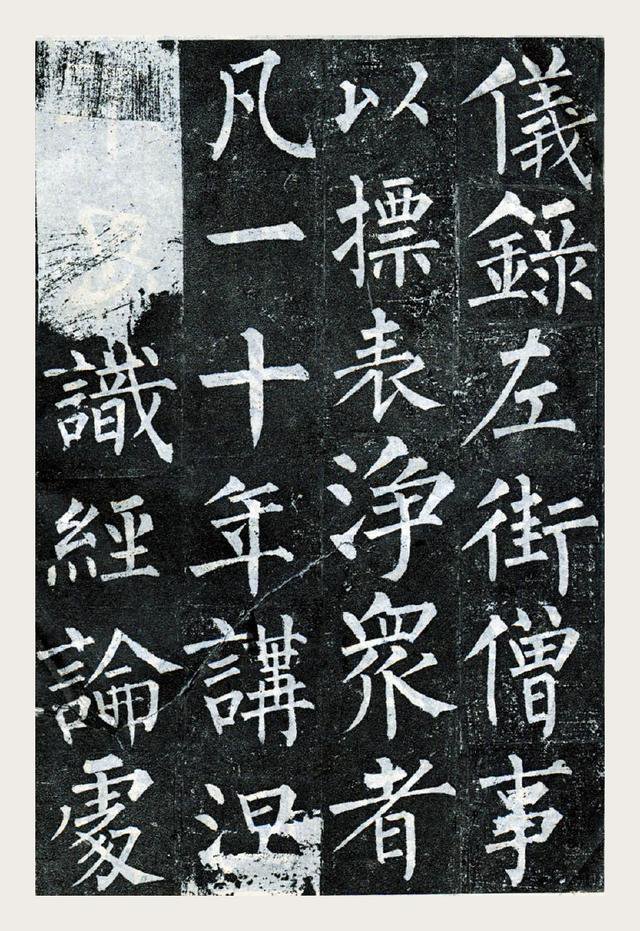 儀錄左街僧事
以標表浄衆者
凡一十年講涅
識經論處